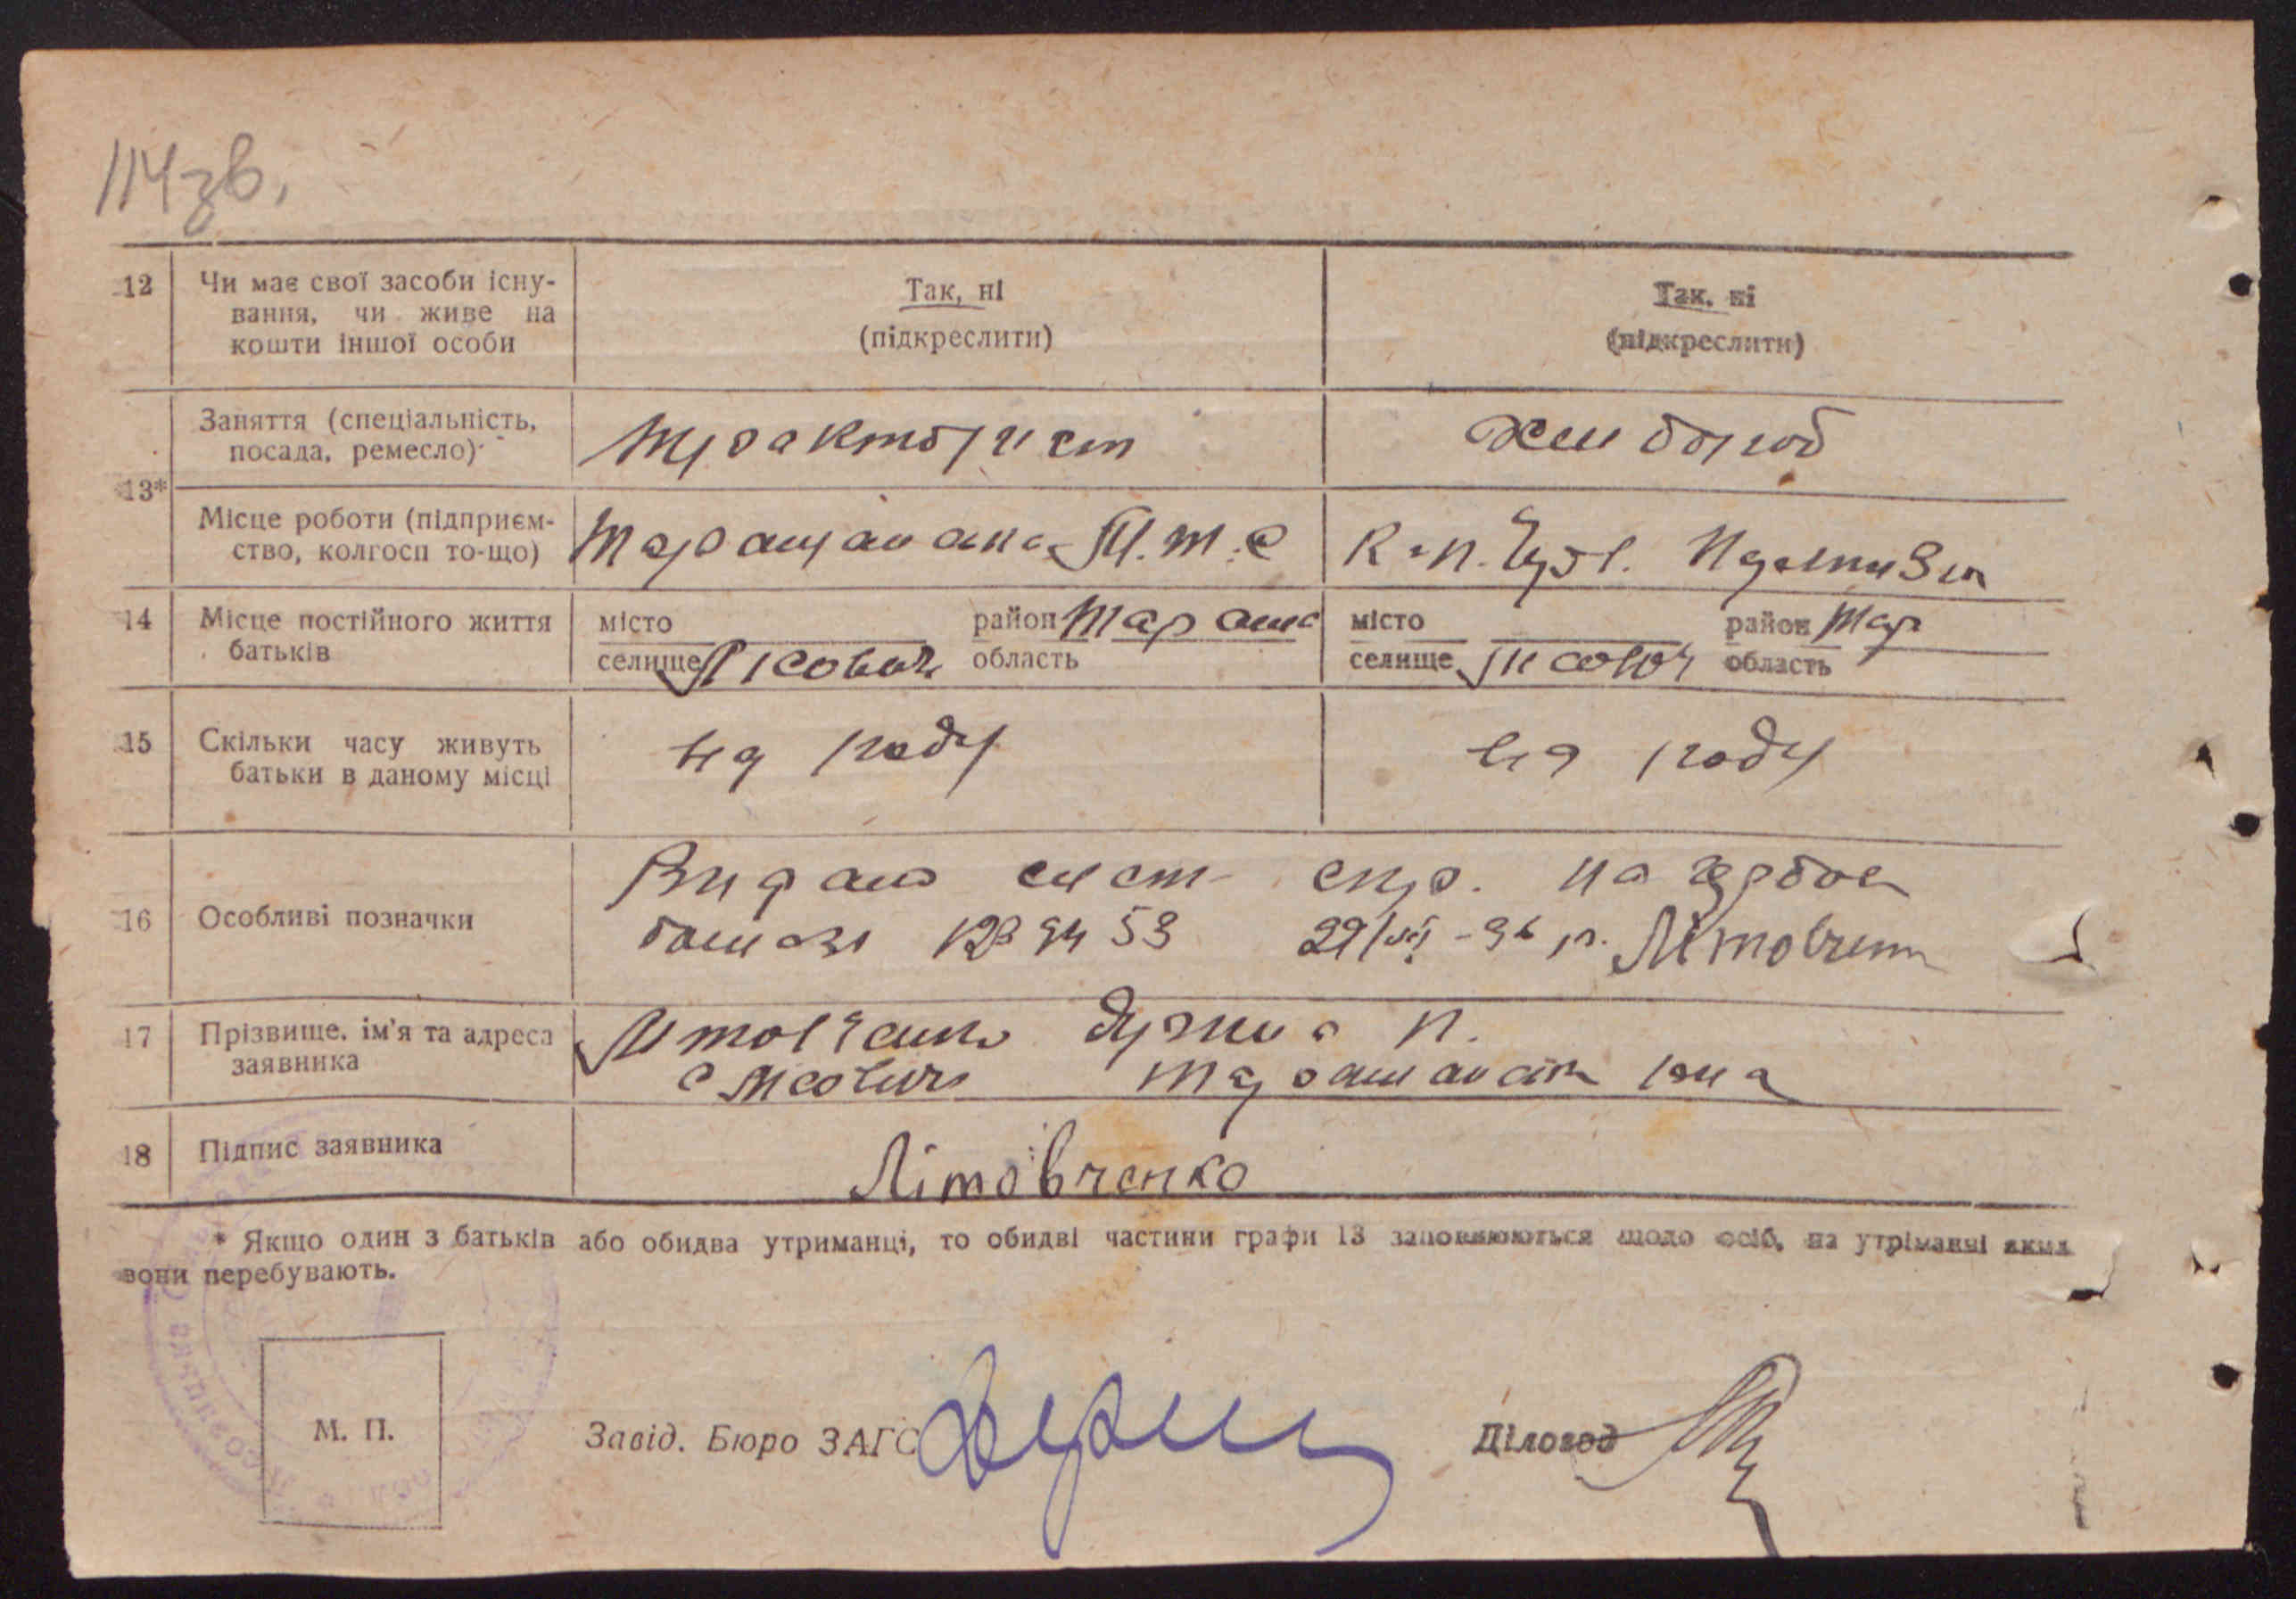 114зв.
12
Чи має свої засоби існу-
вання, чи живе на
кошти іншої особи
Так, ні
(підкреслити)
Так, ні
(підкреслити)
13*
Заняття (спеціальність,
посада, ремесло)
тракторист
хлибороб
Місце роботи (підприєм-
ство, колгосп то-що)
М.Т.С
14
Місце постійного життя
батьків
місто
селище Лісович
район Тараща
область
місто
селище Лісович
район Тар
область
15
Скільки часу живуть
батьки в даному місці
від роду
від роду
16
Особливі позначки
Видано
29/VII-36 р. Літовченк
17
Прізвище, ім'я та адреса
заявника
Літовченко П.
с Лісович
18
Підпис заявника
Літовченко
* Якщо один з батьків або обидва утриманці, то обидві частини графи 13 заповнюються щодо осіб, на утріманні яких
вони перебувають.
М. П.
Завід. Бюро ЗАГС
Діловод